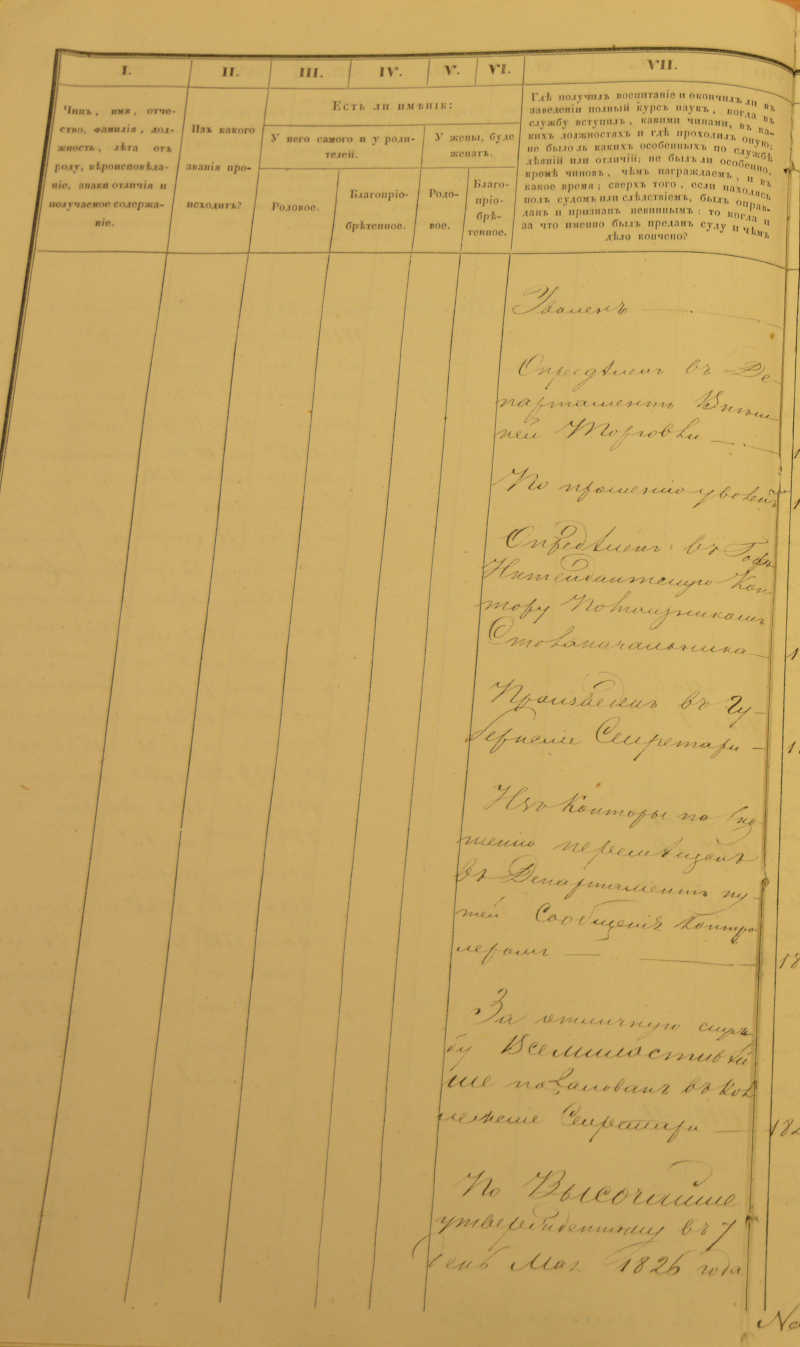 I.
II.
III.
IV.
V.
VI.
VII.
Чинъ, имя, отче-
ство, фамилія, дол-
жность, лѣта отъ
роду, вѣроисповѣда-
ніе, знаки отличія и
получаемое содержа-
ніе.
Изъ какого
званія про-
исходитъ?
Есть ли имѣніе:
У него самого и у роди-
телей.
У жены, буде
женатъ.
Родовое.
Благопріо-
брѣтенное.
Родо-
вое.
Благо-
пріо-
брѣ-
тенное.
Гдѣ получилъ воспитаніе и окончилъ ли въ
заведеніи полный курсъ наукъ, когда въ
службу вступилъ, какими чинами, въ ка-
кихъ должностяхъ и гдѣ проходилъ оную;
не было ль какихъ особенныхъ по службѣ
дѣяній или отличій; не былъ ли особенно,
кромѣ чиновъ, чѣмъ награждаемъ, и въ
какое время; сверхъ того, если находясь
подъ судомъ или слѣдствіемъ, былъ оправ-
данъ и признанъ невиннымъ: то когда и
за что именно былъ преданъ суду и чѣмъ
дѣло кончено?
Уволенъ
Опредѣленъ въ Де
партаментъ Внѣш
ней Торговли
По прошенію уволенъ
Опредѣленъ въ Гоф
Интендантскую Кон
тору Помощникомъ
Столоначальника
Произведенъ въ Гу
бернскіе Секретари
Изъ Конторы по
шенію перемѣщенъ
въ Департаментъ пу
тей Сообщенія Контро
леромъ
За отличную служ
бу Всемилостивѣй
ше пожалованъ въ Кол
лежскіе Секретари
18
182
По Высочайше
утвержденному въ 7
день Мая 1826 года